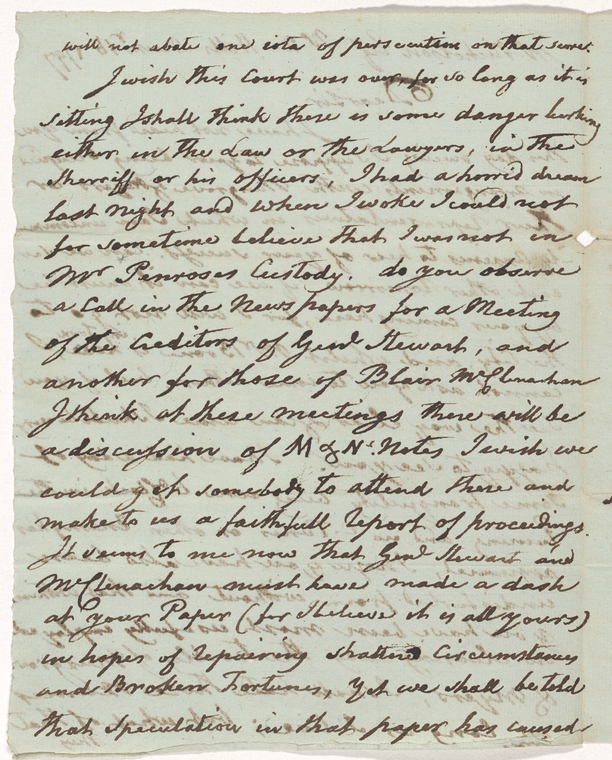 will not abate one iota of persecution on that score.
I wish this Court was over, for so long as it is
sitting I shall think there is some danger lurking
either in the Law or the Lawyers, in the
Sherriff or his officers, I had a horrid dream
last night and when I woke I could not
for sometime believe that I was not in
Mr Penroses Custody. do you observe
a Call in the News papers for a Meeting
of the Creditors of Genl Stewart, and
another for those of Blair McClenachan
I think at these meetings there will be
a discussion of M & Ns. Notes I wish we
could get somebody to attend there and
make to us a faithfull report of proceedings.
It seems to me now that Genl Stewart and
McClenachan must have made a dash
at your Paper (for I believe it is all yours)
in hopes of repairing shattered Circumstances
and Broken Fortunes, Yet we shall be told
that speculation in that paper has caused